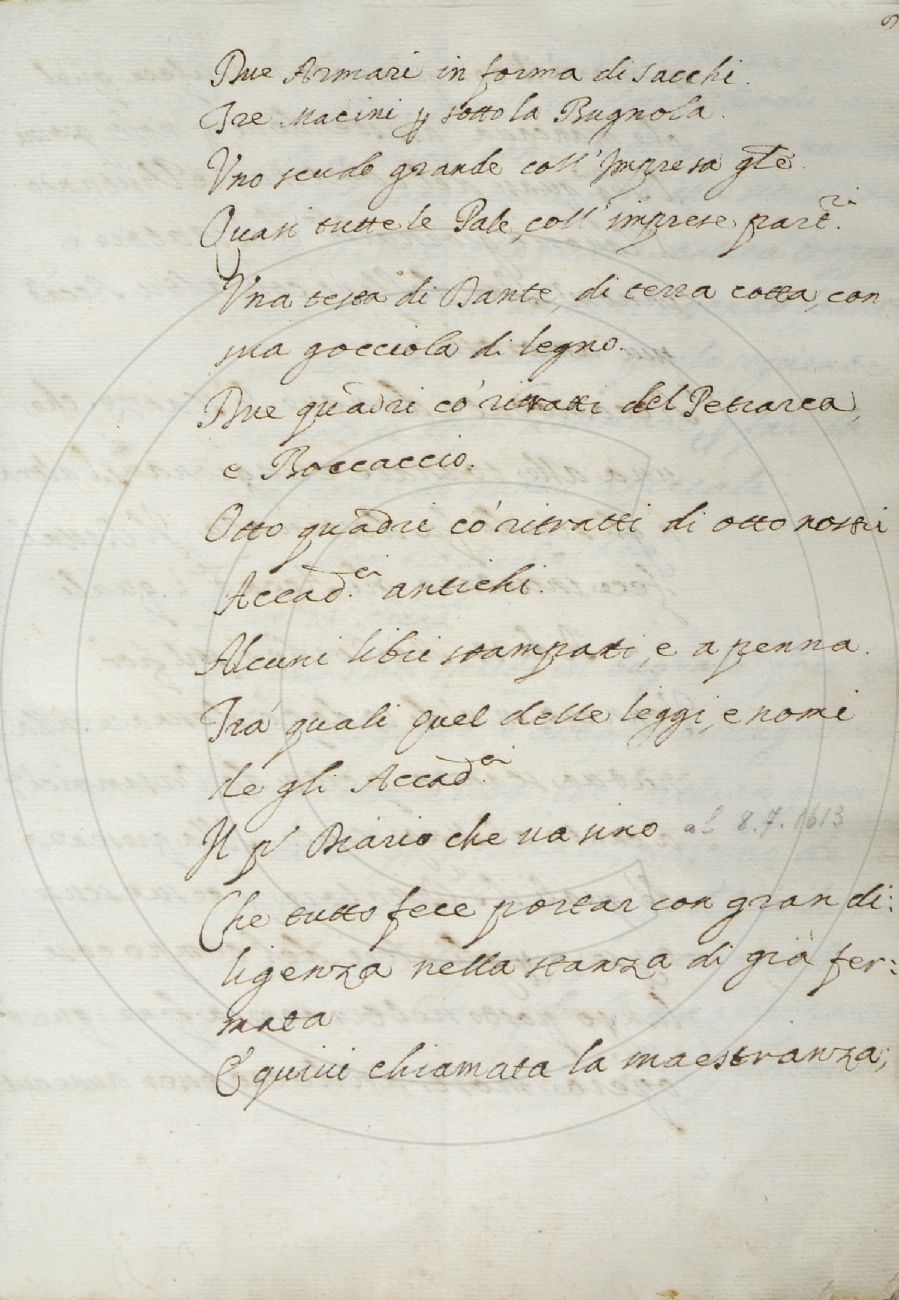 9
Due Armari in forma di sacchi.
Tre Macini ꝑ sotto la Bugnola.
Vno scudo grande coll'Impresa gle.
Quasi tutte le Pale, coll'imprese part.ri
Vna testa di Dante, di terra cotta, con
sua gocciola di legno.
Due quadri co' ritratti del Petrarca,
e Boccaccio.
Otto quadri co' ritratti di otto nostri
Accad.ci antichi.
Alcuni libri stampati, e a penna.
Tra' quali quel delle leggi, e nomi
de gli Accad.ci
Il p.o Diario che va sino al 8.7.1613
Che tutto fece portar con gran di:
ligenza nella stanza di già fer:
mata
E quivi chiamata la maestranza,